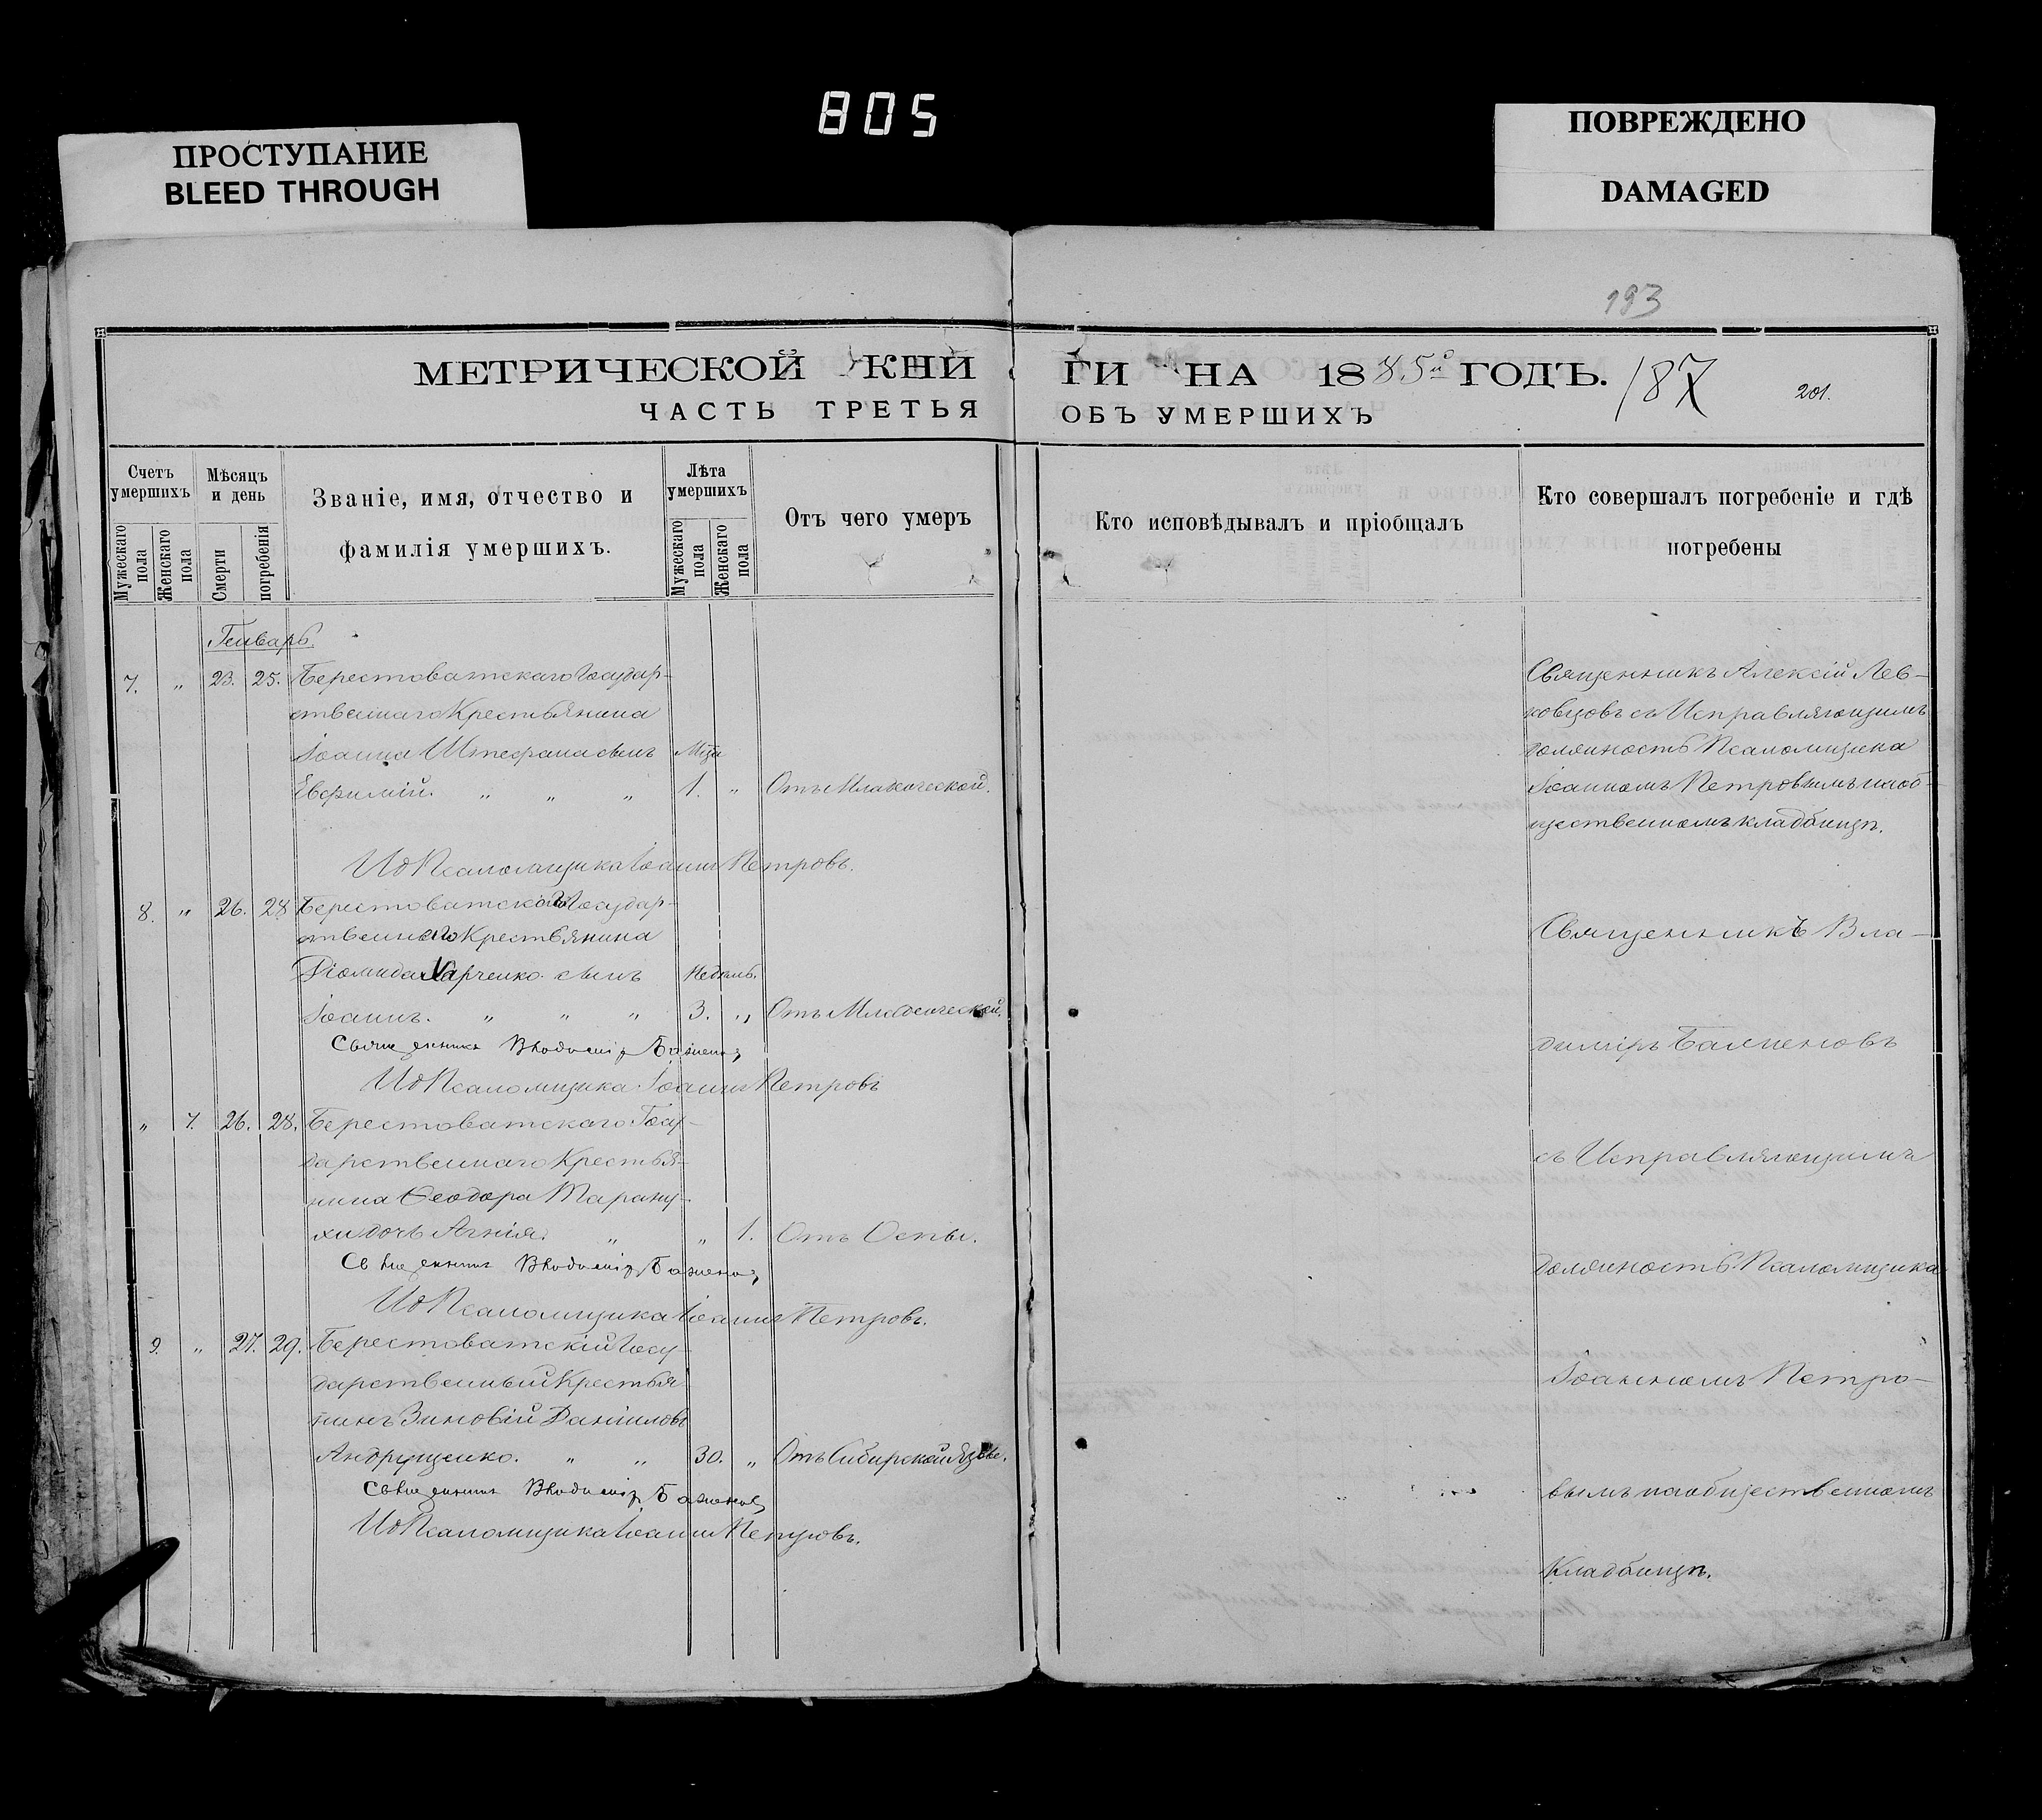 805
ПРОСТУПАНИЕ
BLEED THROUGH
ПОВРЕЖДЕНО
DAMAGED
193
МЕТРИЧЕСКОЙ КНИ
ЧАСТЬ ТРЕТЬЯ
ГИ НА 1885й ГОДЪ.
187
201.
ОБЪ УМЕРШИХЪ
Счетъ умершихъ
Мужескаго пола
Женскаго пола
Мѣсяцъ и день
Смерти
погребенія
Званіе, имя, отчество и
фамилія умершихъ.
Лѣта умершихъ
Мужескаго пола
Женскаго пола
Отъ чего умеръ
Кто исповѣдывалъ и пріобщалъ
Кто совершалъ погребеніе и гдѣ
погребены
Генварь.
7. „ 23. 25. Берестоватскаго Государ-
ственнаго Крестьянина
Іоанна Штефана сынъ
Евфимій. „ „ „ 1. „ Отъ Младенческой.
ИдПсаломщика Іоаннъ Петровъ.
8. „ 26. 28. Берестоватскаго Государ-
ственнаго Крестьянина
Діомида Харченко сынъ Недѣль.
Іоаннъ. „ „ „ 3. „ Отъ Младенческой.
Священникъ Владиміръ Баженовъ
ИдПсаломщика Іоаннъ Петровъ
„ 7. 26. 28. Берестоватскаго Госу-
дарственнаго Крестья-
нина Ѳеодора Тарану-
хи дочь Агнія. „ „ 1. Отъ Оспы.
Священникъ Владиміръ Баженовъ
ИдПсаломщика Іоаннъ Петровъ.
9. „ 27. 29. Берестоватскій Госу-
дарственный Крестья-
нинъ Зиновій Даніиловъ
Андрущенко. „ „ 30. „ Отъ Сибирской Язвы.
Священникъ Владиміръ Баженовъ
ИдПсаломщика Іоаннъ Петровъ.
Священникъ Алексій Лев-
ковцовъ съ Исправляющимъ
должность Псаломщика
Іоанномъ Петровымъ на об-
щественномъ кладбищѣ.
Священникъ Вла-
диміръ Баженовъ
съ Исправляющимъ
должность Псаломщика
Іоанномъ Петро-
вымъ на общественномъ
Кладбищѣ.